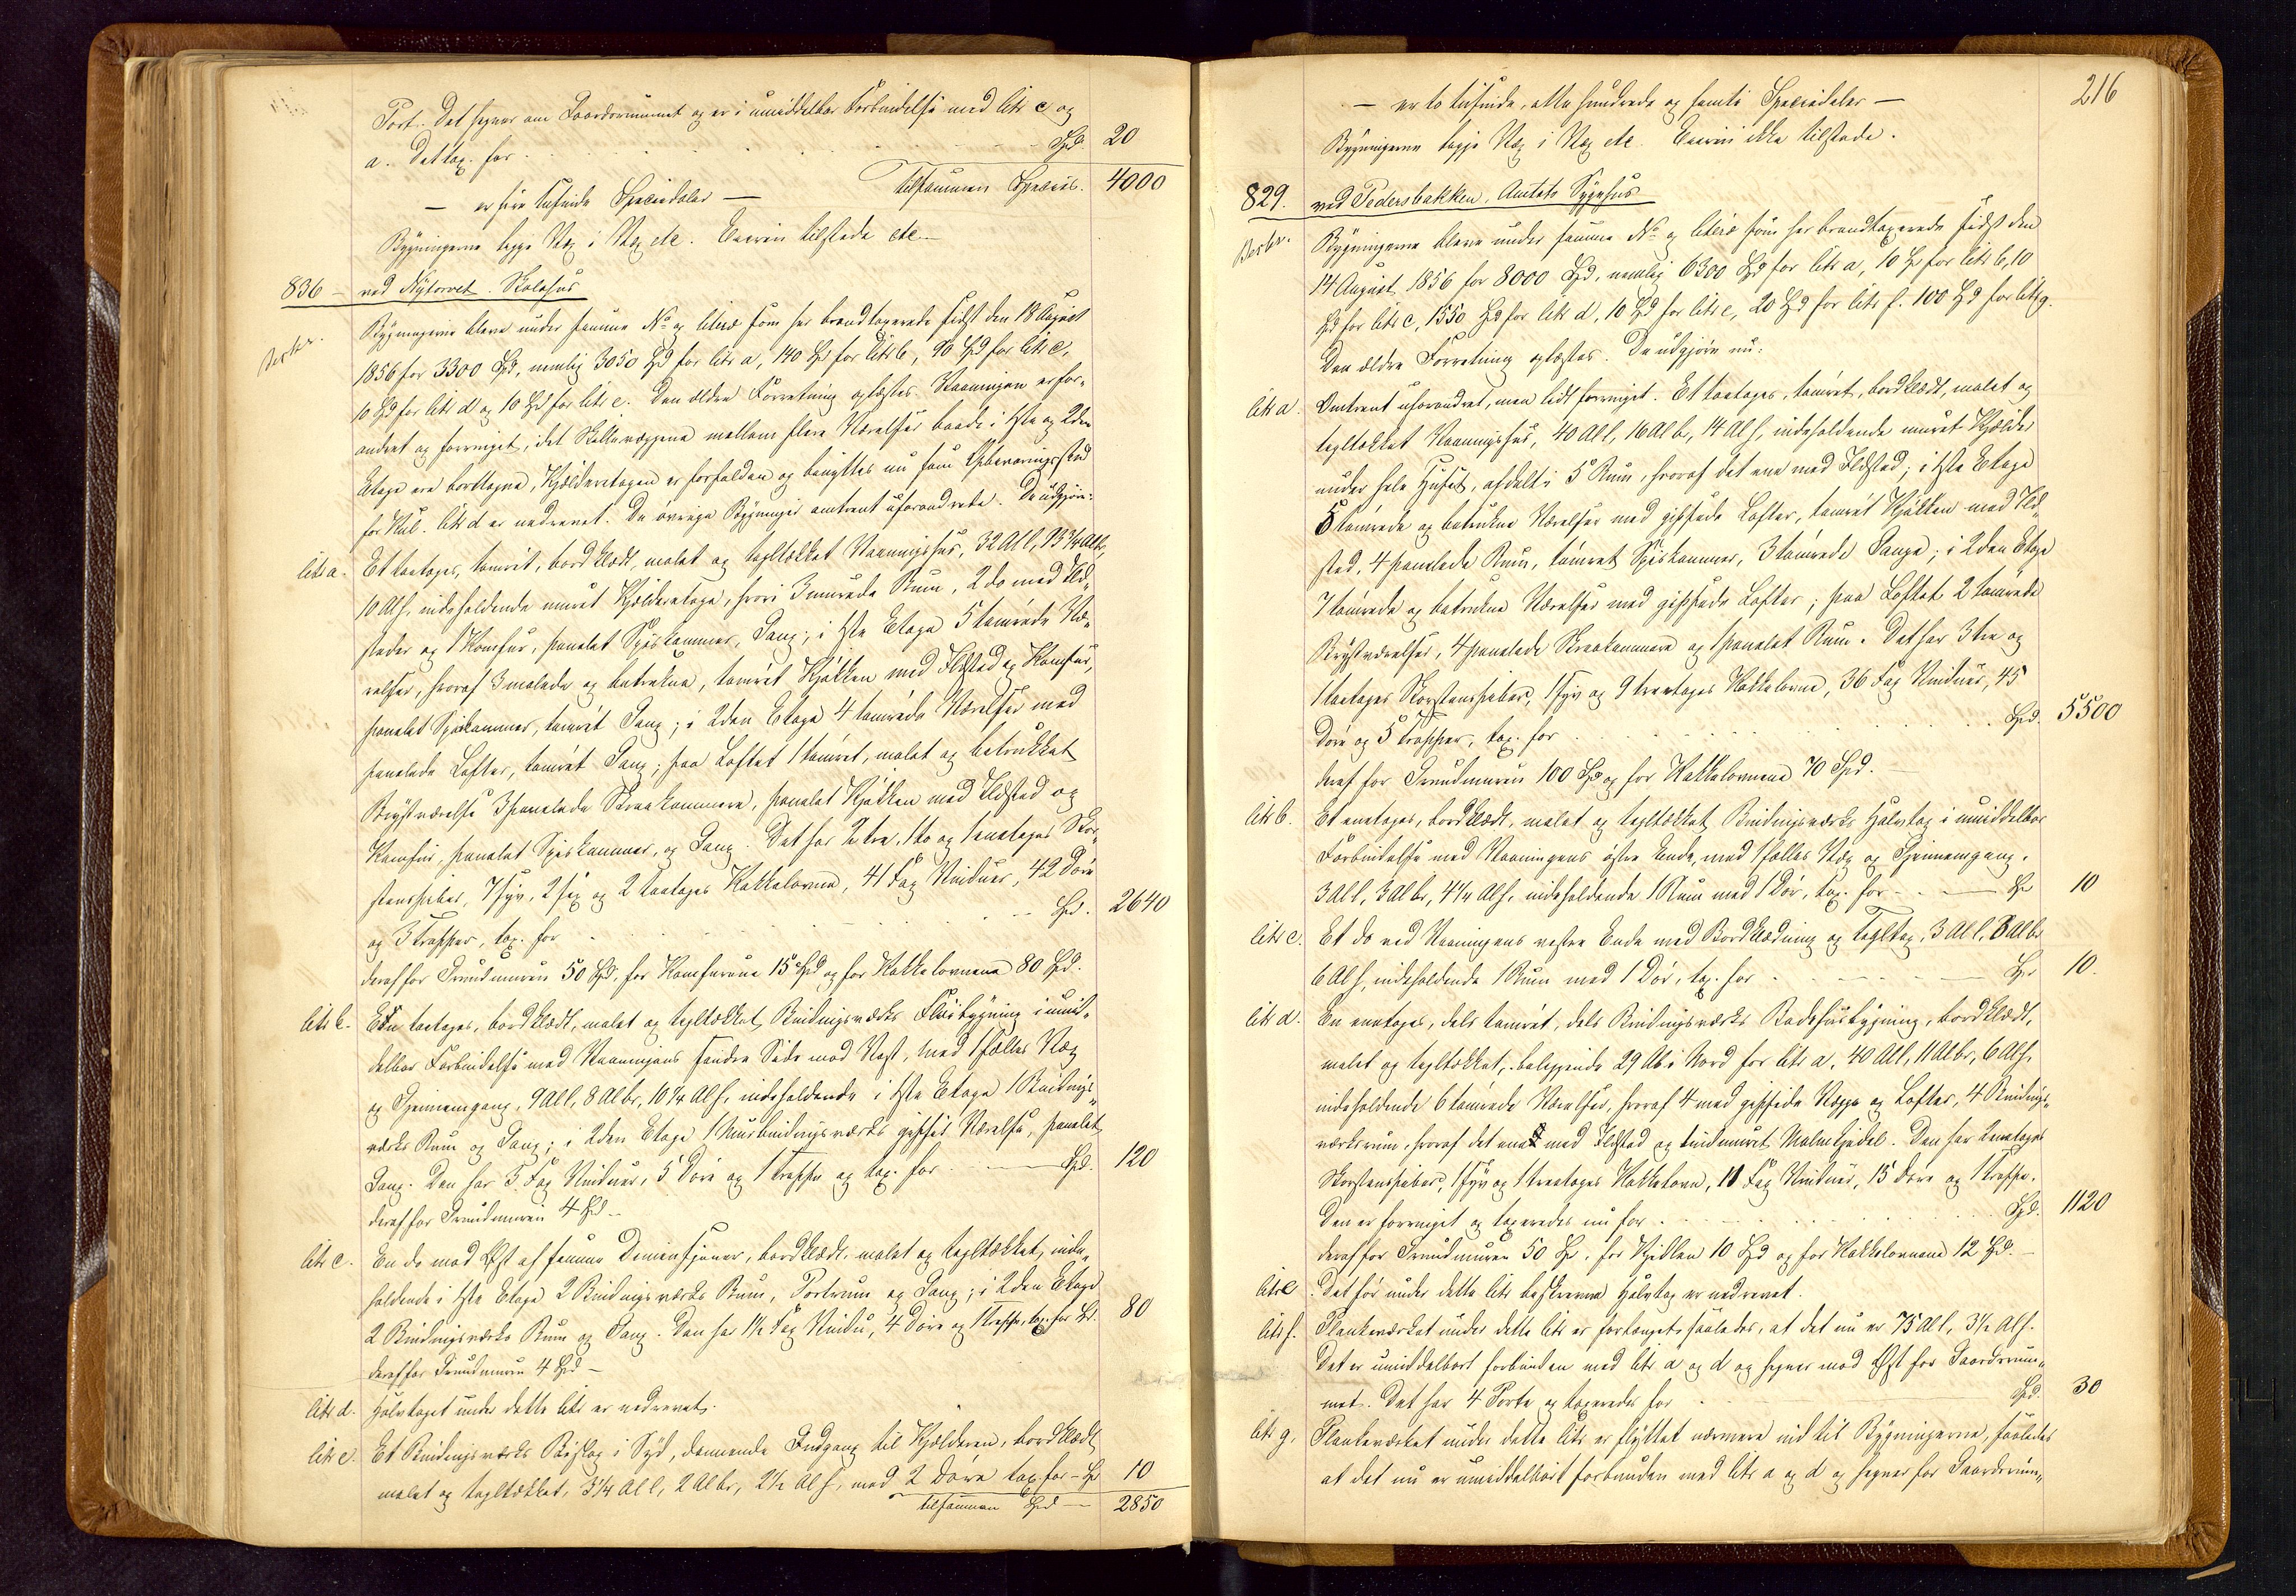 Port. Det hegner om Gaardsrummet og er i umiddelbar Forbindelse med litr c og
a. Det tax. for Spd. 20
Tilsammen Species. 4000
— er fire tusinde Speciedaler —
Bygningerne ligge Væg i Væg etc. Eieren tilstede etc.—
836 — ved Nytorvet. Skolehus
Bygningerne bleve under samme No og literæ som her brandtaxerede sidst den 18 August
1856 for 3300 Spd, nemlig 3050 Spd for litr a, 140 Spd for litr b, 90 Spd for litr c,
10 Spd for litr d og 10 Spd for litr e. Den ældre Forretning oplæstes. Vaaningen er for-
andret og forringet, idet Skillevæggene mellem flere Værelser baade i 1ste og 2den
Etage ere borttagne, Kjælderetagen er forfalden og benyttes nu som Opbevaringssted
for Kul. litr d er nedrevet. De øvrige Bygninger omtrent uforandrede. De udgjøre:
litr a. Et toetages, tømret, bordklædt, malet og tegltækket Vaaningshus, 32 Al l, 13 3/4 Al b,
10 Al h, indeholdende muret Kjælderetage, hvori 3 murede Rum, 2 do med Ild-
steder og 1 Komfur, panelet Spiskammer, Gang; i 1ste Etage 5 tømrede Væ-
relser, hvoraf 3 malede og betrukne, tømret Kjøkken med Ildsted og Komfur,
panelet Spiskammer, tømret Gang; i 2den Etage 4 tømrede Værelser med
panelede Lofter, tømret Gang; paa Loftet 1 tømret, malet og betrukket
Brystværelse 3 panelede Skraakammere, panelet Kjøkken med Ildsted og
Komfur, panelet Spiskammer, og Gang. Det har 2 tre, 1 to og 1 enetages Skor-
stenspiber, 7 fyr, 2 sex og 2 toetages Kakkelovne, 41 Fag Vinduer, 42 Døre
og 3 Trapper, tax. for Spd. 2640
deraf for Grundmuren 50 Spd, for Komfurene 15 Spd og for Kakkelovnene 80 Spd.
litr b. En toetages, bordklædt, malet og tegltækket Bindingsværks Fløibygning i umid-
delbar Forbindelse med Vaaningens søndre Side mod Vest, med 1 fælles Væg
og Gjennemgang, 9 Al l, 8 Al br, 10 1/4 Al h, indeholdende i 1ste Etage 1 Bindings-
værks Rum og Gang; i 2den Etage 1 Murbindingsværks gipset Værelse, panelet
Gang. Den har 3 Fag Vinduer, 5 Døre og 1 Trappe og tax. for Spd. 120
deraf for Grundmuren 4 Spd —
litr c. En do mod Øst af samme Dimensjoner, bordklædt, malet og tegltækket, inde-
holdende i 1ste Etage 2 Bindingsværks Rum, Portrum og Gang; i 2den Etage
2 Bindingsværks Rum og Gang. Den har 1 1/2 Fag Vindu, 4 Døre og 1 Trappe, tax. for Sp. 80
deraf for Grundmuren 4 Spd —
litr d. Halvtaget under dette litr er nedrevet.
litr e. Et Bindingsværks Bislag i Syd, dannende Indgang til Kjælderen, bordklædt
malet og tegltækket, 3 1/4 Al l, 2 Al br, 2 1/2 Al h, med 2 Døre tax. for — Sp 10
tilsammen Spd — 2850
216
— er to tusinde, otte hundrede og femti Speciedaler —
Bygningerne ligge Væg i Væg etc. Eieren ikke tilstede.
829. ved Pedersbakken, Amtets Sygehus
Bygningerne bleve under samme No og literæ som her brandtaxerede sidst den
14 August 1856 for 8000 Spd, nemlig 6300 Spd for litr a, 10 Sp for litr b, 10
Spd for litr c, 1550 Spd for litr d, 10 Spd for litr e, 20 Spd for litr f. 100 Spd for litr g.
Den ældre Forretning oplæstes. De udgjøre nu:
litr a. Omtrent uforandret, men lidt forringet. Et toetages, tømret, bordklædt, malet og
tegltækket Vaaningshus, 40 Al l, 16 Al br, 14 Al h, indeholdende muret Kjælder
under hele Huset, afdelt i 5 Rum, hvoraf det ene med Ildsted; i 1ste Etage
5 tømrede og betrukne Værelser med gipsede Lofter, tømret Kjøkken med Ild-
sted, 4 panelede Rum, tømret Spiskammer, 3 tømrede Gange; i 2den Etage
7 tømrede og betrukne Værelser med gipsede Lofter; paa Loftet 2 tømrede
Brystværelser, 4 panelede Skraakammere og 1 panelet Rum. Det har 3 tre og
1 toetages Skorstenspiber, 1 fyr og 9 treetages Kakkelovne, 36 Fag Vinduer, 45
Døre og 5 Trapper, tax. for Spd. 5500
deraf for Grundmuren 100 Spd og for Kakkelovnene 70 Spd. —
litr b. Et enetages, bordklædt, malet og tegltækket Bindingsværks Halvtag i umiddelbar
Forbindelse med Vaaningens østre Ende, med 1 fælles Væg og Gjennemgang.
3 Al l, 3 Al br, 4 1/4 Al h, indeholdende 1 Rum med 1 Dør, tax. for Sp 10
litr c. Et do ved Vaaningens vestre Ende med Bordklædning og Tegltag, 3 Al l, 3 Al br
6 Al h, indeholdende 1 Rum med 1 Dør, tax. for Sp 10.
litr d. En enetages, dels tømret, dels Bindingsværks Badehusbygning, bordklædt,
malet og tegltækket, beliggende 29 Al i Nord for litr a, 40 Al l, 11 Al br, 6 Al h,
indeholdende 6 tømrede Værelser, hvoraf 4 med gipsede Vægge og Lofter, 4 Bindings-
værksrum, hvoraf det ene med Ildsted og indmuret Malmkjedel. Den har 2 enetages
Skorstenspiber, 1 fyr og 1 treetages Kakkelovn, 11 Fag Vinduer, 15 Døre og 1 Trappe.
Den er forringet og taxeredes nu for Spd. 1120
deraf for Grundmuren 50 Sp, for Kjedlen 10 Spd og for Kakkelovnene 12 Spd. —
litr e. Det før under dette litr beskrevne Halvtag er nedrevet.
litr f. Plankeværket under dette litr er forlænget saaledes, at det nu er 75 Al l, 3 1/2 Al h.
Det er umiddelbart forbunden med litr a og d og hegner mod Øst for Gaardsrum-
met. Det har 4 Porte og taxeredes for Spd. 30
litr g. Plankeværket under dette litr er flyttet nærmere ind til Bygningerne, saaledes
at det nu er umiddelbart forbunden med litr a og d og hegner for Gaardsrum-